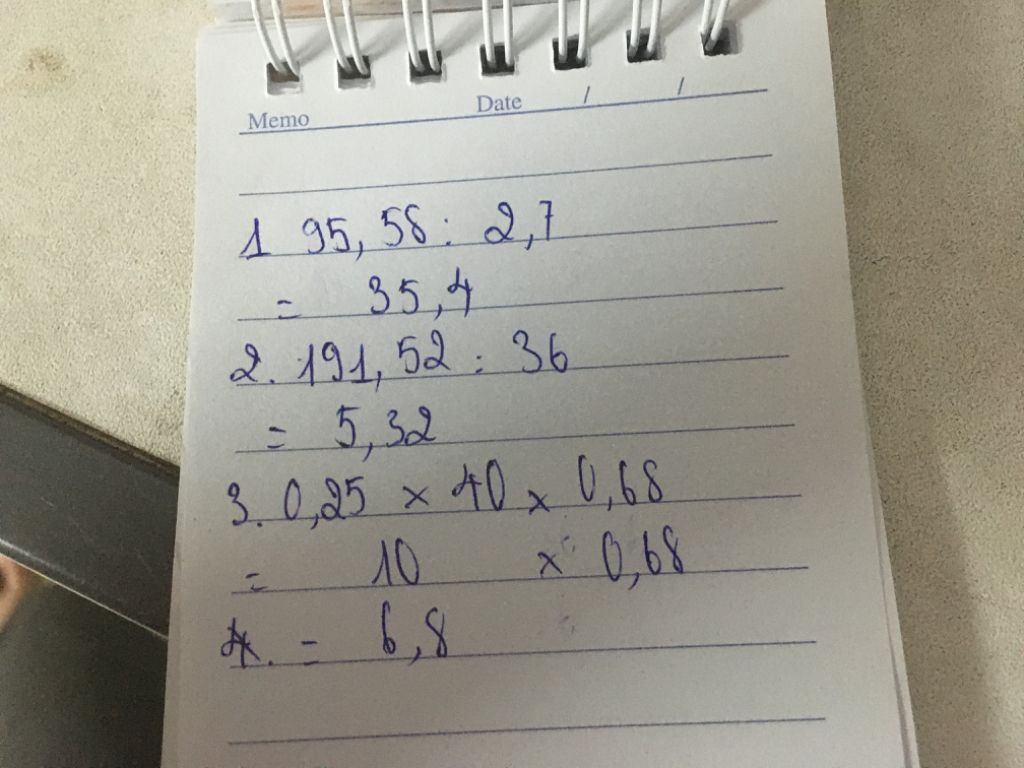 Memo Date / /
1 95,58 : 2,7
= 35,4
2. 191,52 : 36
= 5,32
3. 0,25 x 40 x 0,68
= 10 x 0,68
= 6,8